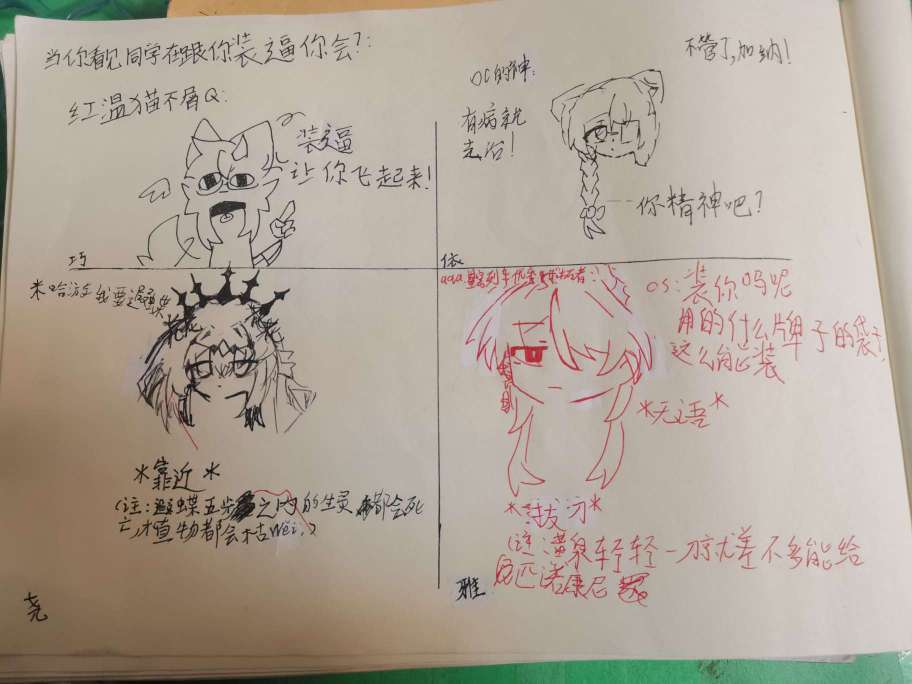 当你看见同学在跟你装逼你会?:
红温猫不屑Q:
装逼
让你飞起来!
巧
不管了,加纳!
OC的神:
有病就
去治!
你精神吧?
依
米哈游我要退
*靠近*
(注:遐蝶五步之内的生灵都会死
亡,植物都会枯wei.)
尧
OS:装你吗呢
用的什么牌子的袋子
这么能装
*无语*
*拔刀*
(注:黄泉轻轻一刀就差不多能给
匹诺康尼
雅